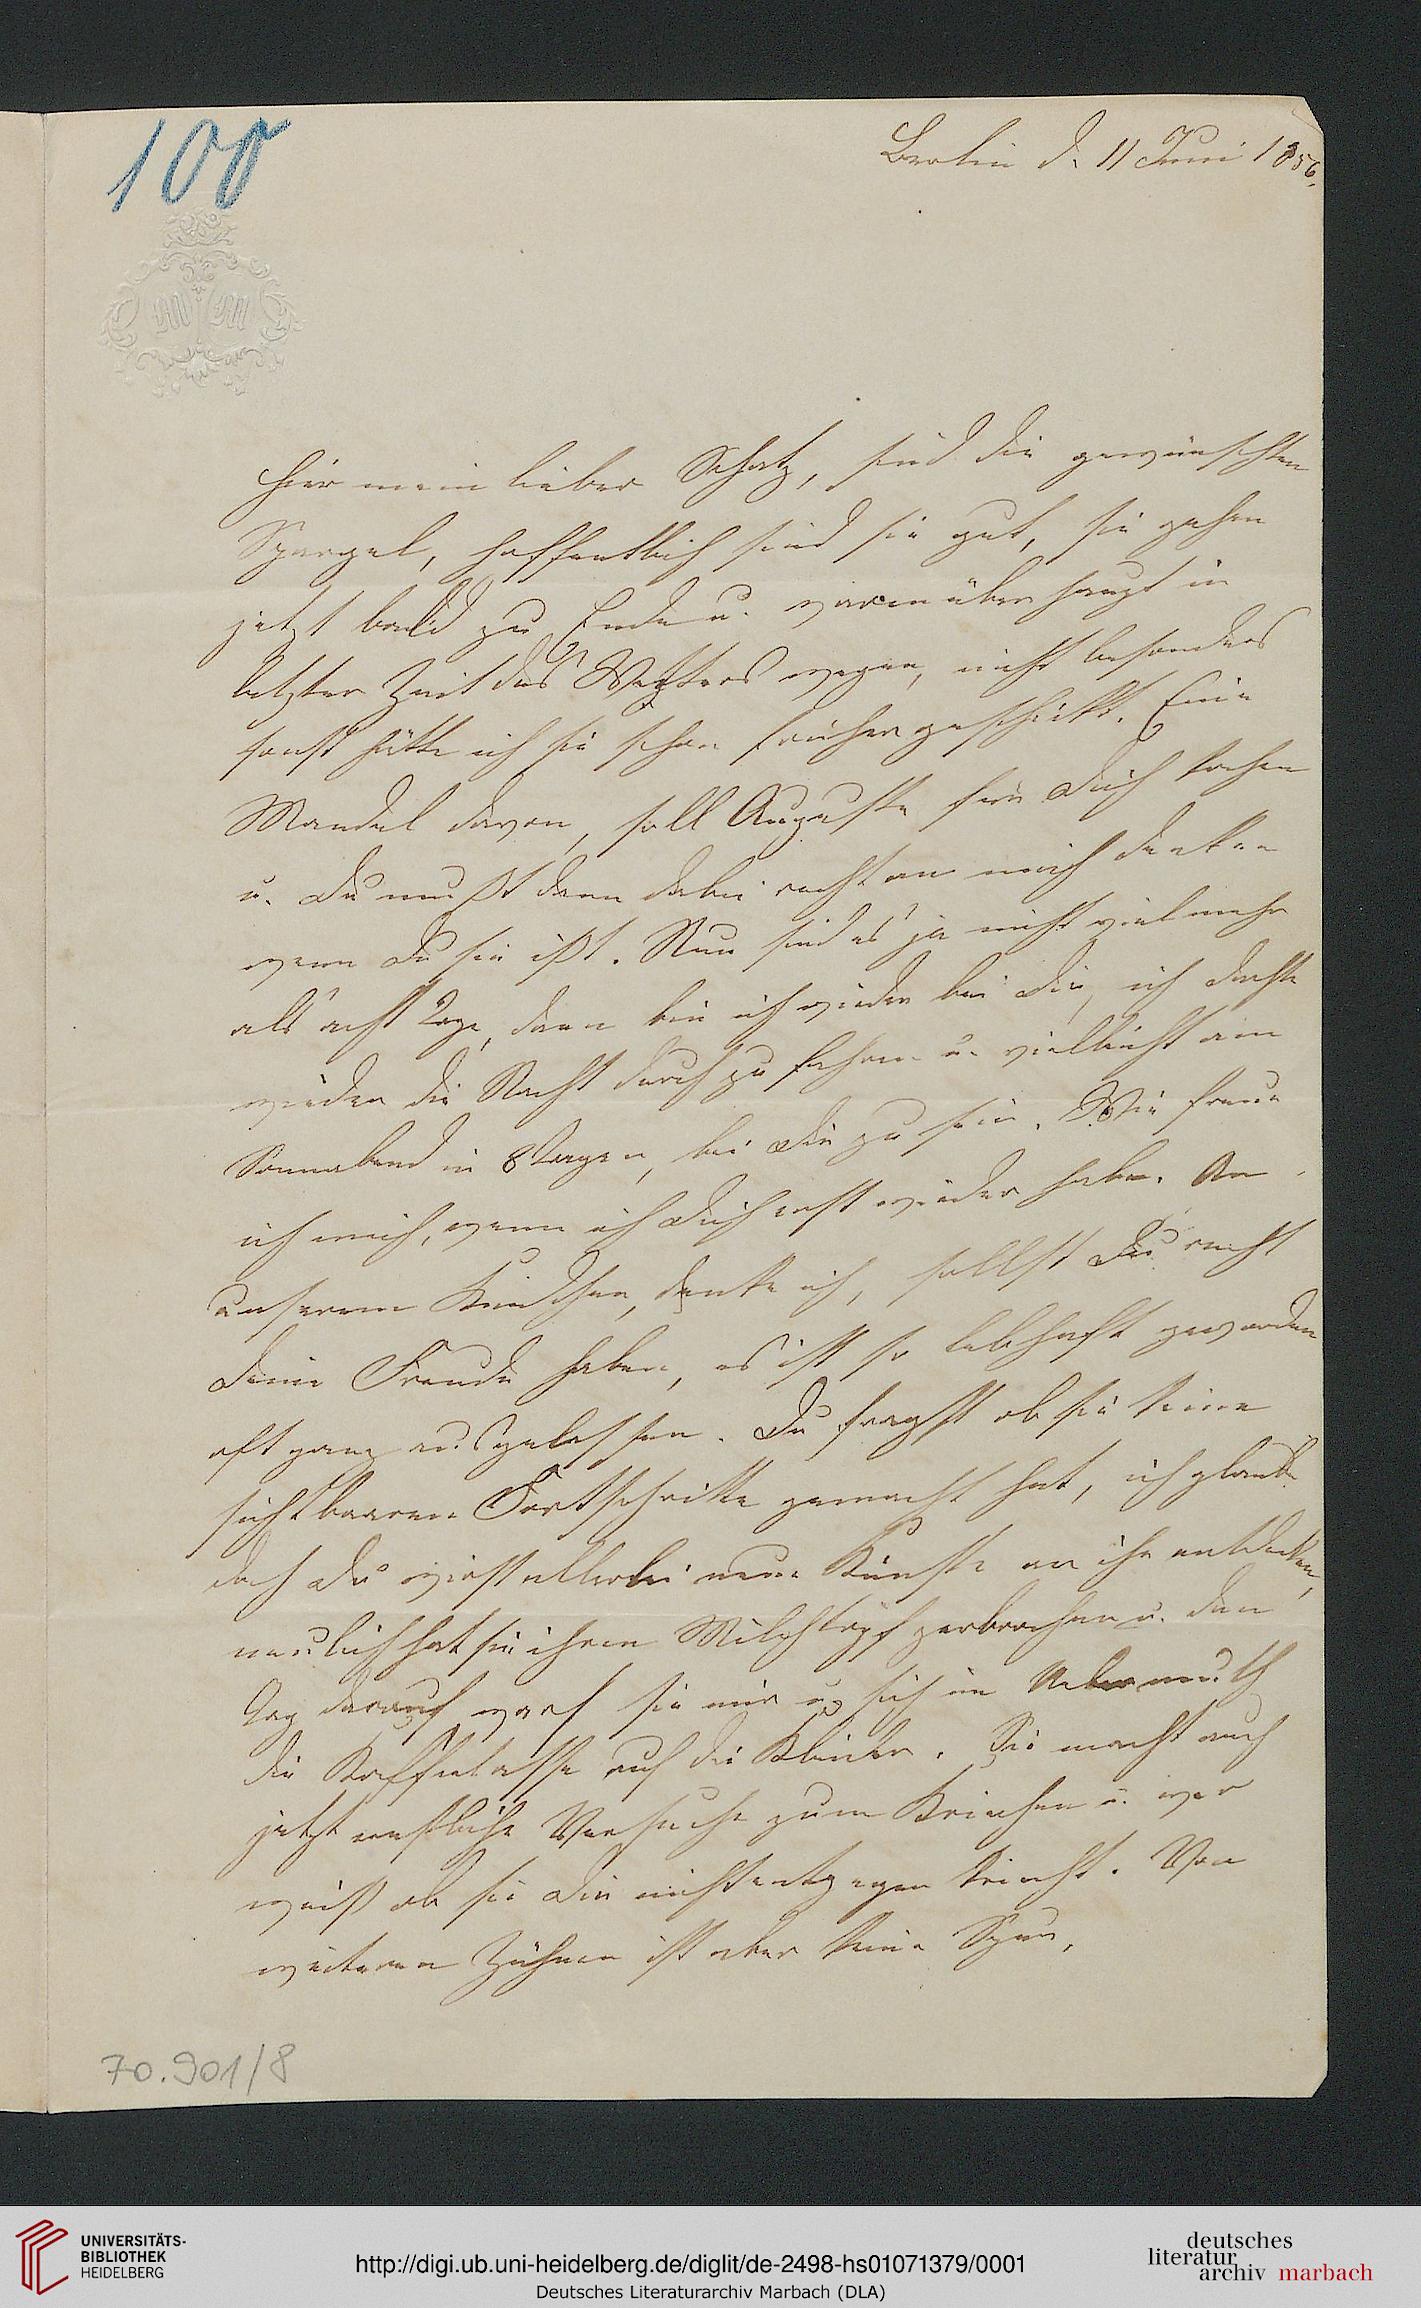 100
Berlin d. 11 Juni 1856.
Hier mein lieber Schatz, sind die gewünschten
Spargel, hoffentlich sind sie gut, sie gehen
jetzt bald zu Ende u. waren überhaupt in
letzter Zeit des Wetters wegen, nicht besonders
sonst hätte ich sie schon früher geschickt. Eine
Mandel davon, soll Auguste für Dich kochen
u. Du mußt dann dabei recht an mich denken
wenn Du sie ißt. Nun sind es ja nicht viel mehr
als acht Tage, dann bin ich wieder bei Dir, ich dachte
wieder die Nacht durch zu fahren u. vielleicht am
Sonnabend in 8 Tagen, bei Dir zu sein. Wie freue
ich mich, wenn ich Dich erst wieder habe. An
unserem Kindchen, denke ich, sollst Du recht
Deine Freude haben, es ist so lebhaft geworden
oft ganz ausgelassen. Du fragst ob sie keine
sichtbaaren Fortschritte gemacht hat, ich glaube
doch Du wirst allerlei neue Künste an ihr entdecken,
neulich hat sie ihren Milchtopf zerbrochen u. den
Tag darauf warf sie mir u. sich im Uebermuth
die Kaffeetasse auf die Kleider. Sie macht auch
jetzt ernstliche Versuche zum Kriechen u. wer
weiß ob sie Dir nicht entgegen kriecht. Von
weiteren Zähnen ist aber keine Spur,
70.901/8
UNIVERSITÄTS-
BIBLIOTHEK
HEIDELBERG
http://digi.ub.uni-heidelberg.de/diglit/de-2498-hs01071379/0001
Deutsches Literaturarchiv Marbach (DLA)
deutsches
literatur
archiv marbach